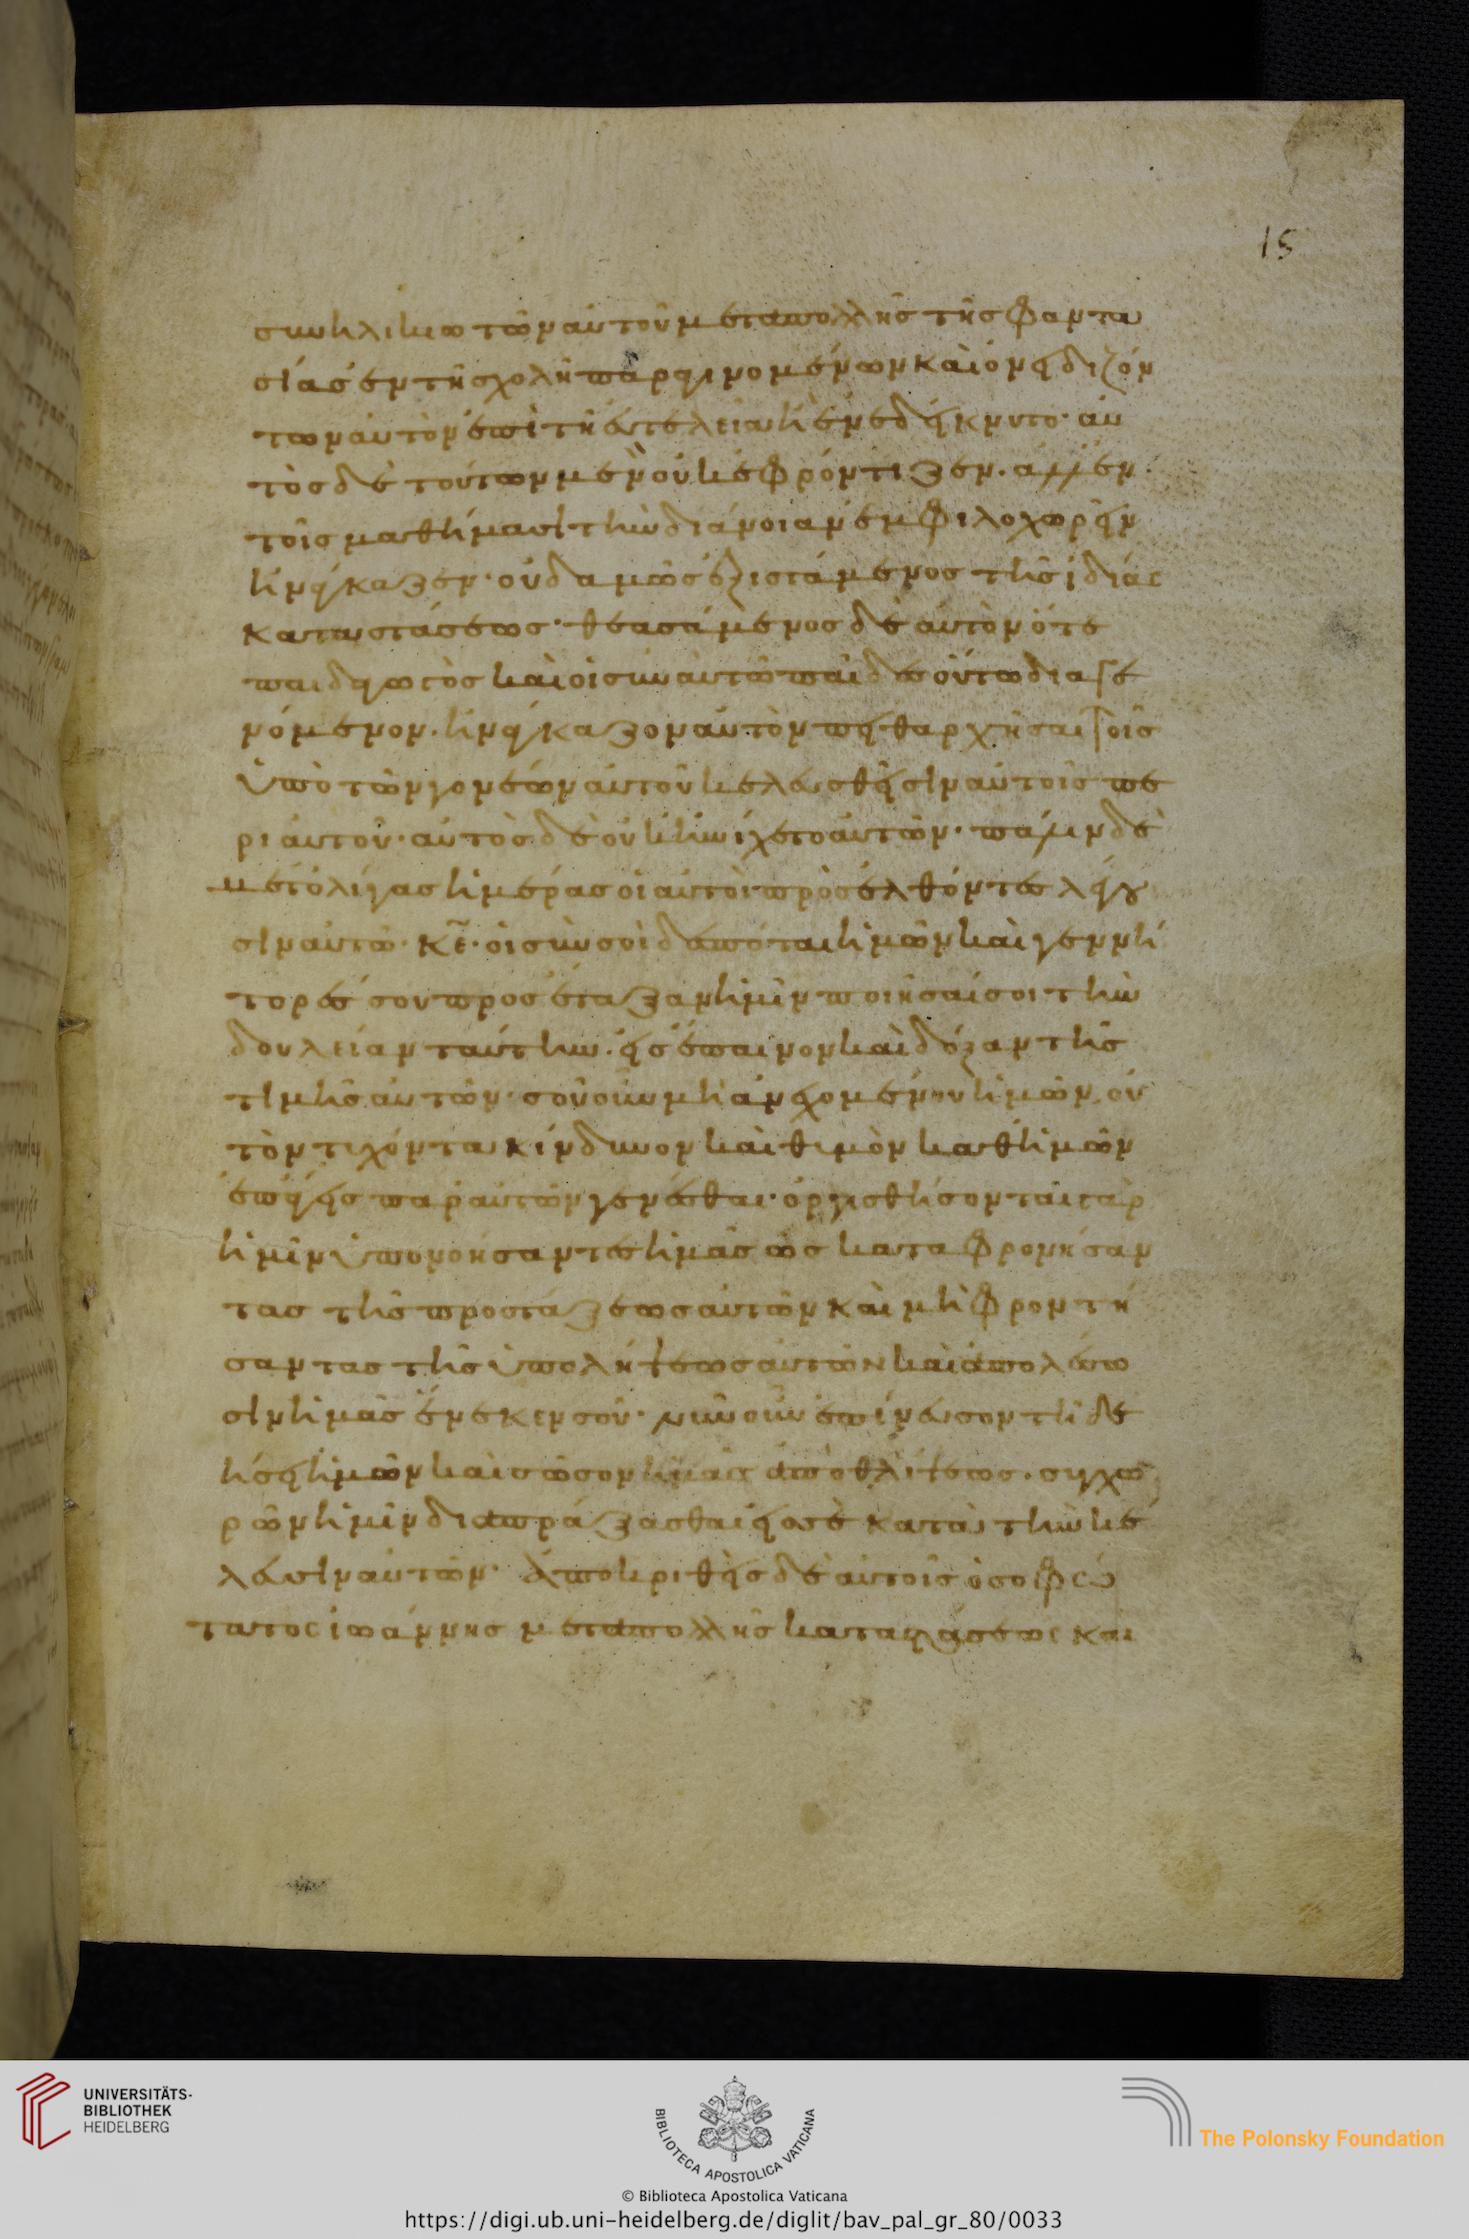 15
συνηλικιωτῶν αὐτοῦ μετὰ πολλῆς τῆς φαντα
σίας ἐν τῆ σχολῆ παραγινομένων καὶ ὀνειδιζόν
των αὐτὸν ἐπὶ τῆ εὐτελεία ἡ ἐνεδείκνυτο· αὐ
τὸς δὲ τούτων μὲν οὐκ ἐφρόντιζεν. ἀλλ' ἐν
τοῖς μαθήμασι τὴν διάνοιαν ἐμφιλοχωρεῖν
ἠνάγκαζεν· οὐδαμῶς ἐξιστάμενος τῆς ἰδίας
καταστάσεως· θεασάμενος δὲ αὐτὸν ὅτε
παιδαγωγὸς καὶ οἱ σὺν αὐτῶ παῖδες οὕτω διαγε
νόμενον. ἠνάγκαζον αὐτὸν πειθαρχῆσαι τοῖς
ὑπὸ τῶν γονέων αὐτοῦ κελευσθεῖσιν αὐτοῖς πε
ρὶ αὐτοῦ· αὐτὸς δὲ οὐκ ἠνίχετο αὐτῶν· πάλιν δὲ
μετ' ὀλίγας ἡμέρας οἱ αὐτοὶ προσελθόντες λέγου
σιν αὐτῶ· κε· οἱ σὺν σοὶ δεσπόται ἡμῶν καὶ γεννή
τορές σου προσέταξαν ἡμῖν ποιῆσαί σοι τὴν
δουλείαν ταύτην· εἰς ἔπαινον καὶ δόξαν τῆς
τιμῆς αὐτῶν· σοῦ οὖν μὴ ἀνεχομένου ἡμῶν, οὐ
τὸν τυχόντα κίνδυνον καὶ θυμὸν καθ' ἡμῶν
ἔπεισις παρ' αὐτῶν γενέσθαι· ὀργισθήσονται γὰρ
ἡμῖν ὑπονοήσαντες ἡμᾶς ὡς καταφρονήσαν
τας τῆς προστάξεως αὐτῶν καὶ μὴ φροντή
σαντας τῆς ὑπολήψεως αὐτῶν καὶ ἀπολέσω
σιν ἡμᾶς ἕνεκέν σου· νῦν οὖν ἐπίνευσον τῆ δε
ήσει ἡμῶν καὶ σῶσον ἡμᾶς ἀπὸ θλίψεως. συγχω
ρῶν ἡμῖν διαπράξασθαι εἰς σὲ κατὰ τὴν κέ
λευσιν αὐτῶν· ἀποκριθεὶς δὲ αὐτοῖς ὁ σοφώ
τατος ἰωάννης μετὰ πολλῆς κατανύξεως καὶ
UNIVERSITÄTS-
BIBLIOTHEK
HEIDELBERG
BIBLIOTECA APOSTOLICA VATICANA
The Polonsky Foundation
© Biblioteca Apostolica Vaticana
https://digi.ub.uni-heidelberg.de/diglit/bav_pal_gr_80/0033